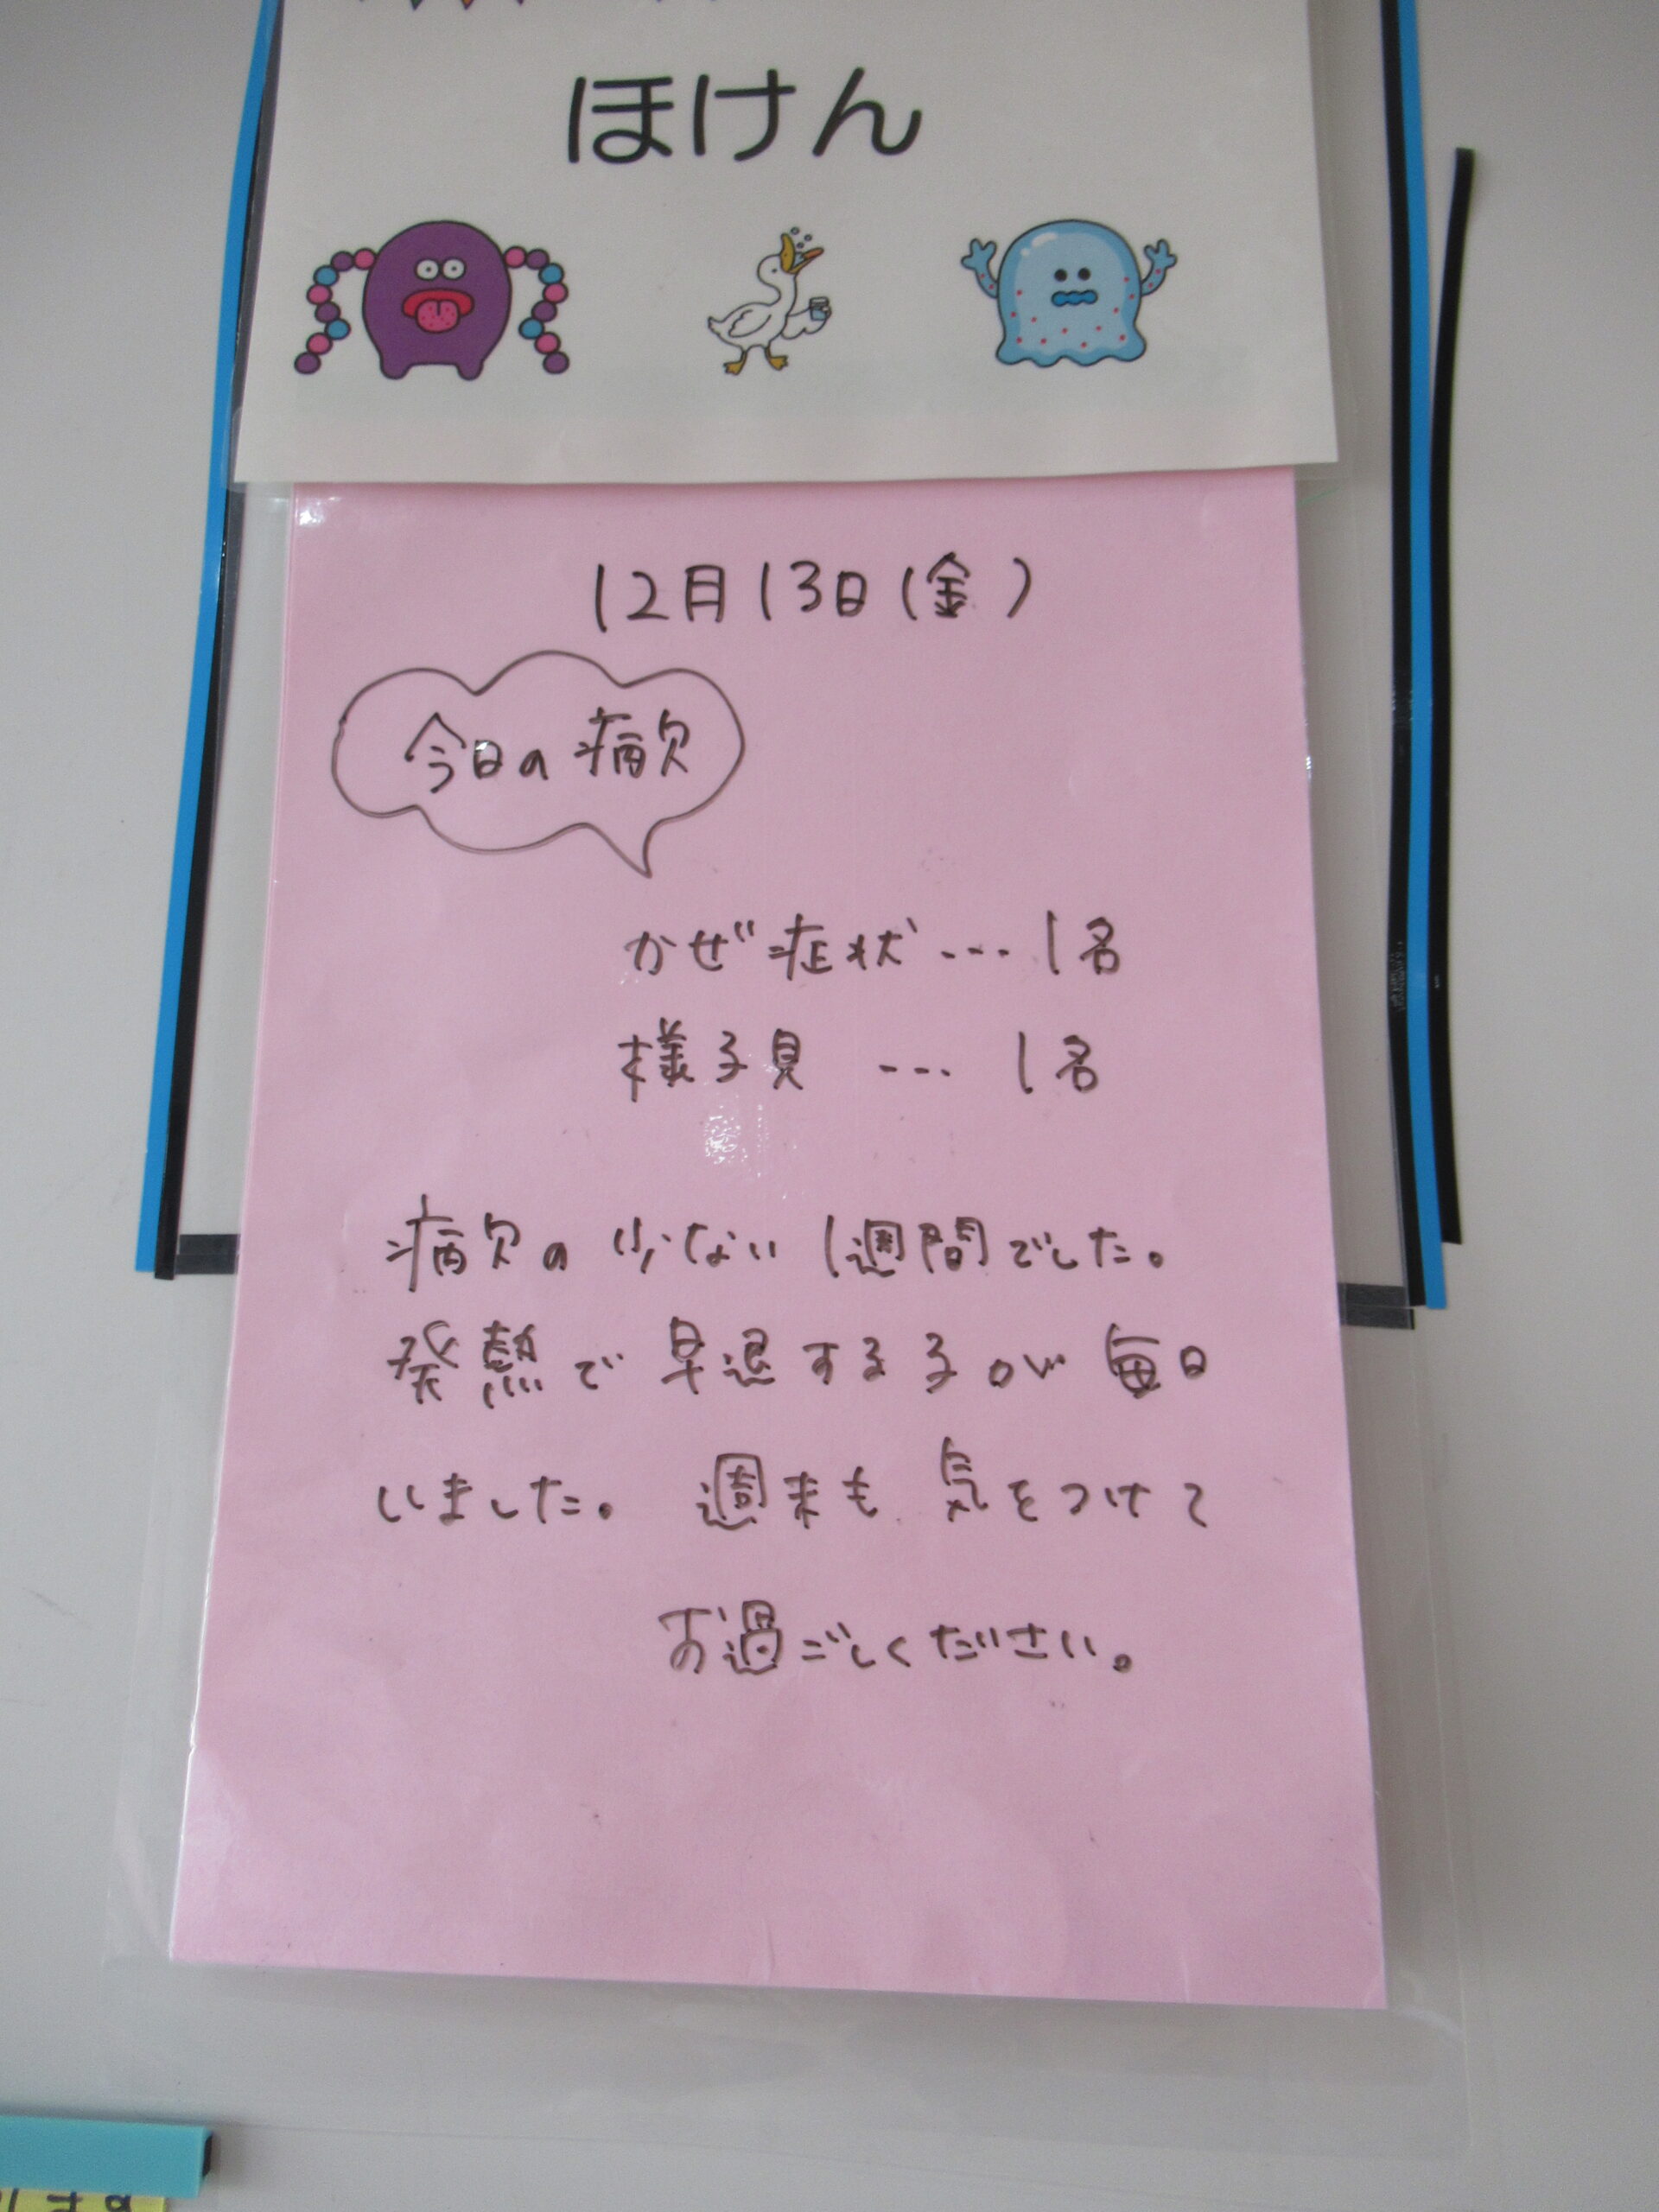 ほけん
12月13日(金)
今日の病欠
かぜ症状…1名
様子見 … 1名
病欠の少ない1週間でした。
発熱で早退する子が毎日
いました。 週末も気をつけて
お過ごしください。